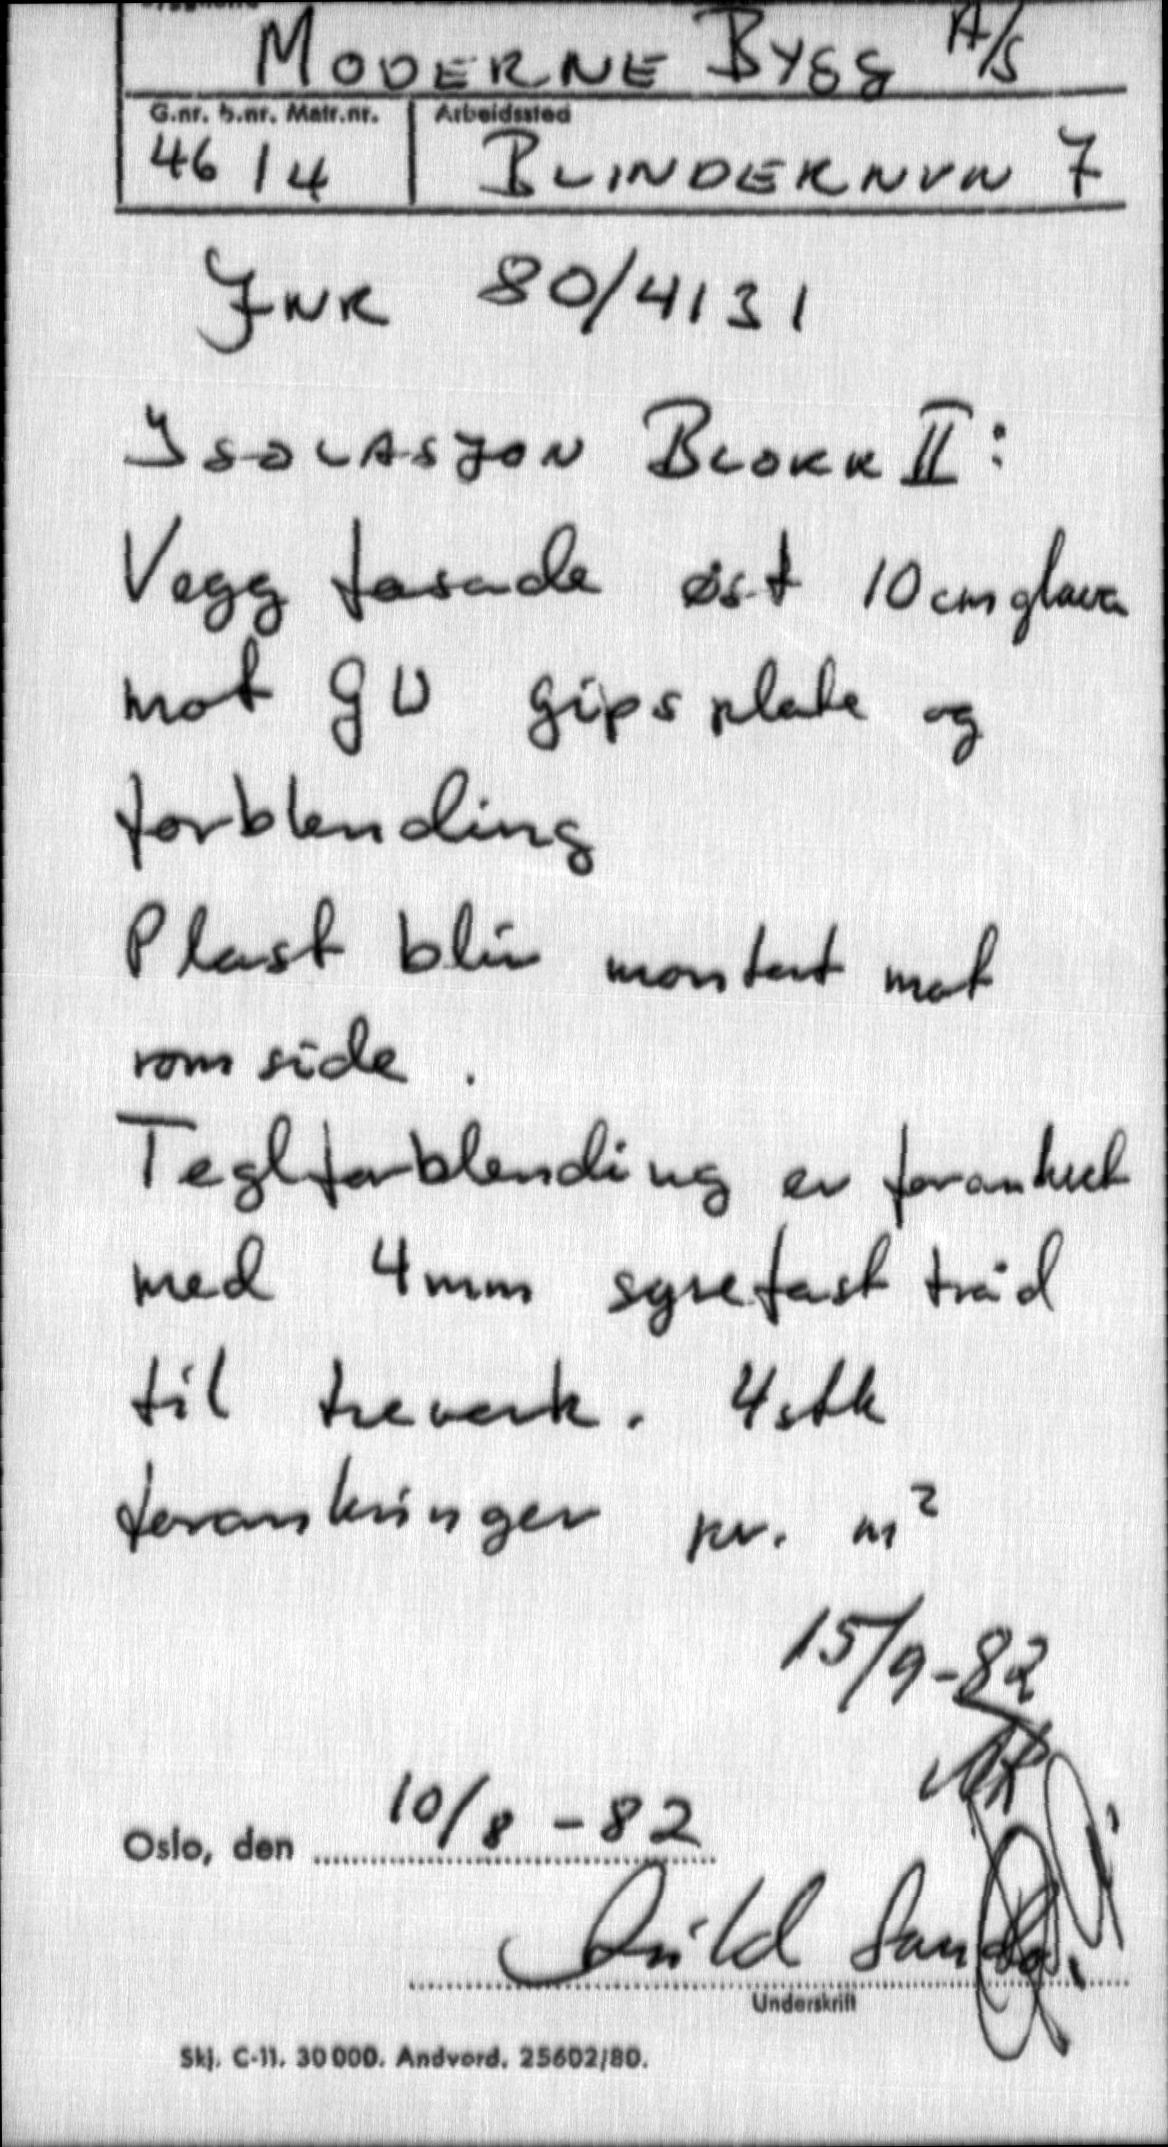 MODERNE BYGG A/S
G.nr. b.nr. Matr.nr. Arbeidssted
46 14 BLINDERNVN 7
JNR 80/4131
ISOLASJON BLOKK II:
Vegg fasade øst 10 cm glava
mot GU gipsplate og
forblending
Plast blir montert mot
rom side.
Teglforblending er forankret
med 4mm syrefast tråd
til treverk. 4 stk
forankringer pr. m²
15/9-82
Oslo, den 10/8-82
Underskrift
Skj. C-11. 30 000. Andvord. 25602/80.